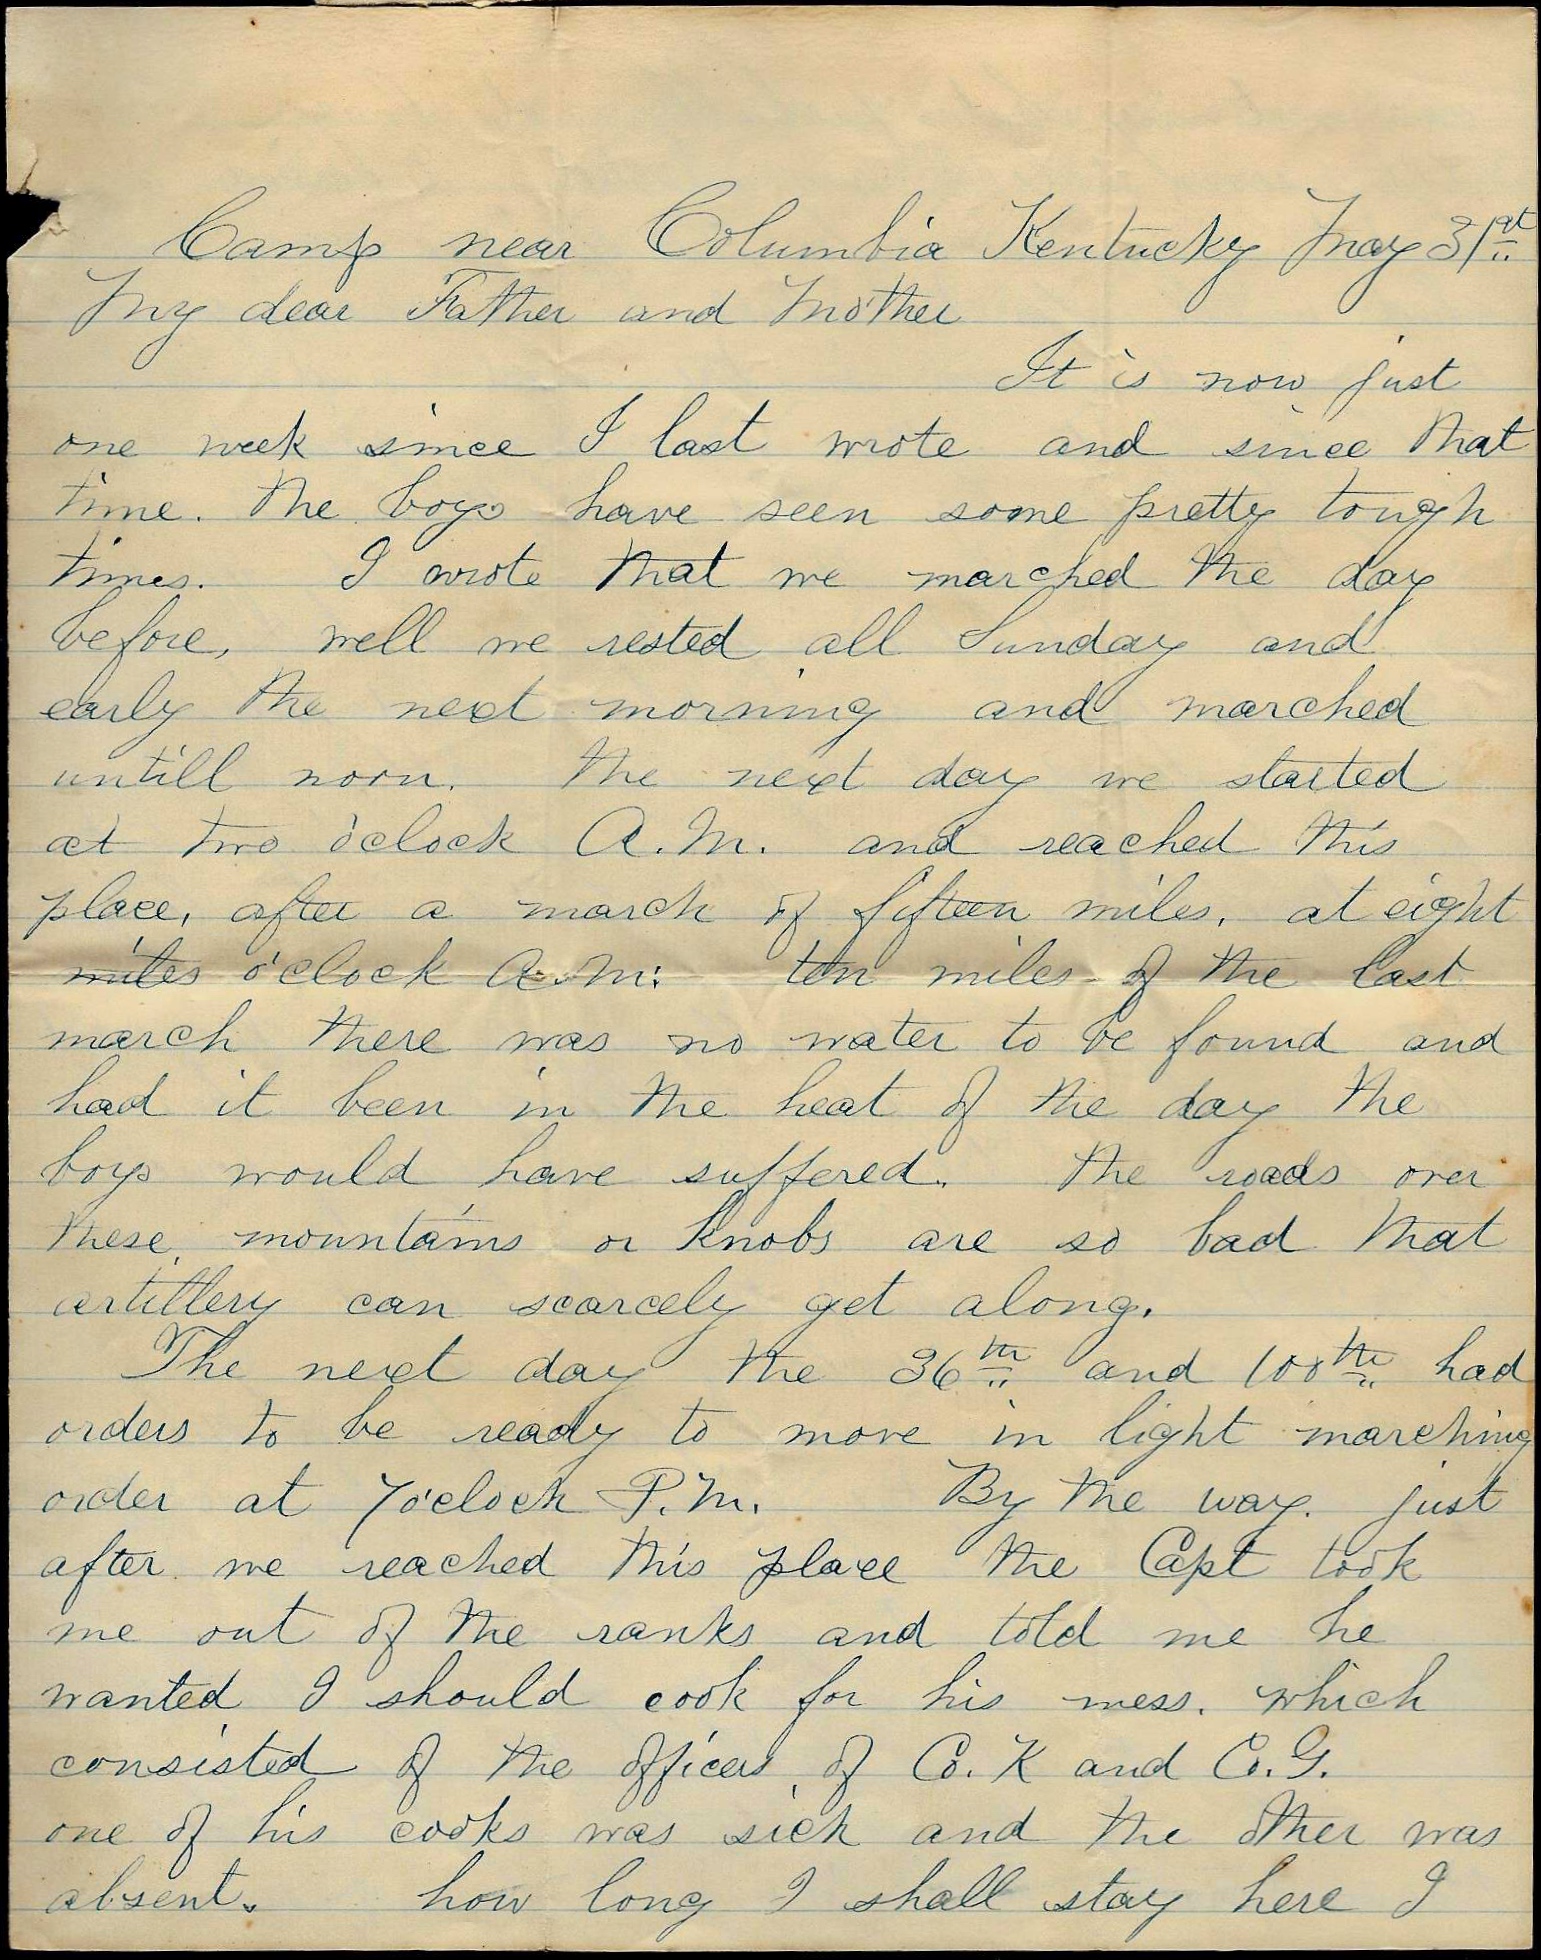 Camp near Columbia Kentucky May 31st
My dear Father and Mother
It is now just
one week since I last wrote and since that
time. the boys have seen some pretty tough
times. I wrote that we marched the day
before, well we rested all Sunday and
early the next morning and marched
untill noon. the next day we started
at two o'clock A.M. and reached this
place, after a march of fifteen miles, at eight
miles o'clock A.M. ten miles of the last
march there was no water to be found and
had it been in the heat of the day the
boys would have suffered. the roads over
these mountains or knobs are so bad that
artillery can scarcely get along.
The next day the 36th and 100th had
orders to be ready to move in light marching
order at 7 o'clock P.M. By the way. just
after we reached this place the Capt took
me out of the ranks and told me he
wanted I should cook for his mess. which
consisted of the officers of Co. K and Co. G.
one of his cooks was sick and the other was
absent. how long I shall stay here I